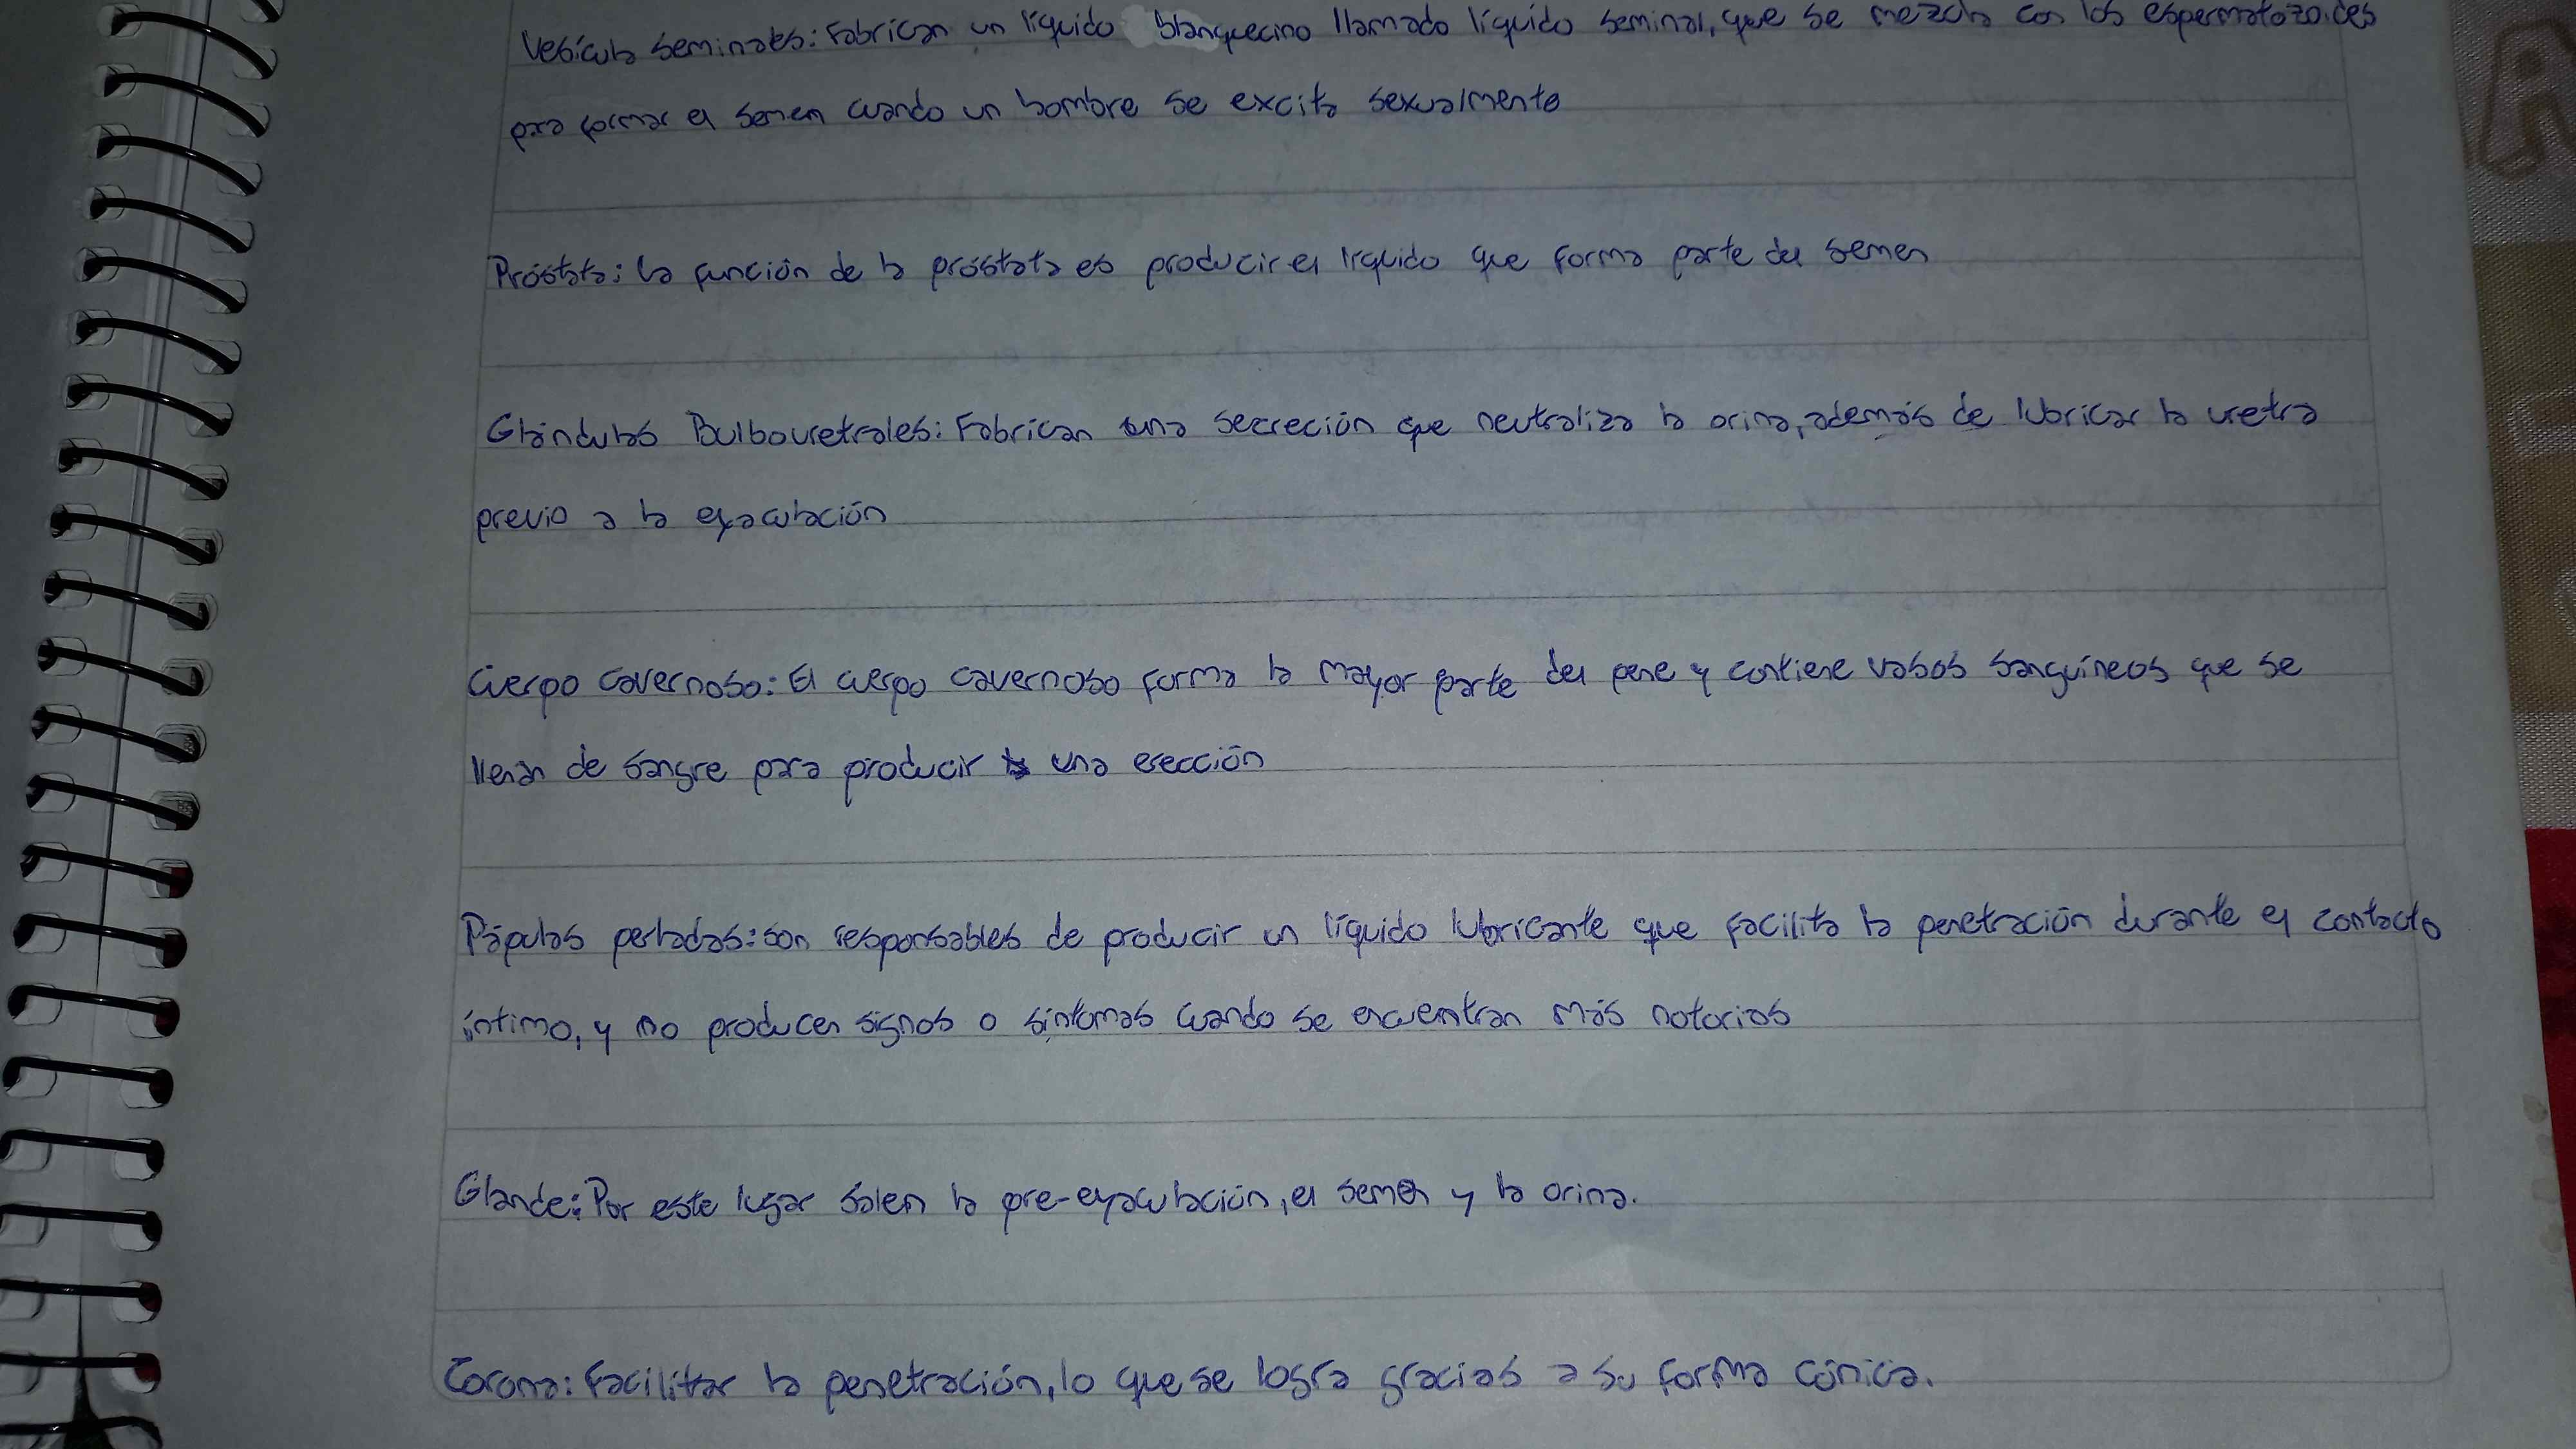 Vesícula seminales: Fabrican un líquido blanquecino llamado líquido seminal, que se mezcla con los espermatozoides
para formar el semen cuando un hombre se excita sexualmente
Próstata: la función de la próstata es producir el líquido que forma parte del semen
Glándulas Bulbouretrales: Fabrican una secreción que neutraliza la orina, además de lubricar la uretra
previo a la eyaculación
Cuerpo cavernoso: El cuerpo cavernoso forma la mayor parte del pene y contiene vasos sanguíneos que se
llenan de sangre para producir una erección
Pápulas perladas: son responsables de producir un líquido lubricante que facilita la penetración durante el contacto
íntimo, y no producen signos o síntomas cuando se encuentran más notorias
Glande: Por este lugar salen la pre-eyaculación, el semen y la orina.
Corona: Facilitar la penetración, lo que se logra gracias a su forma cónica.